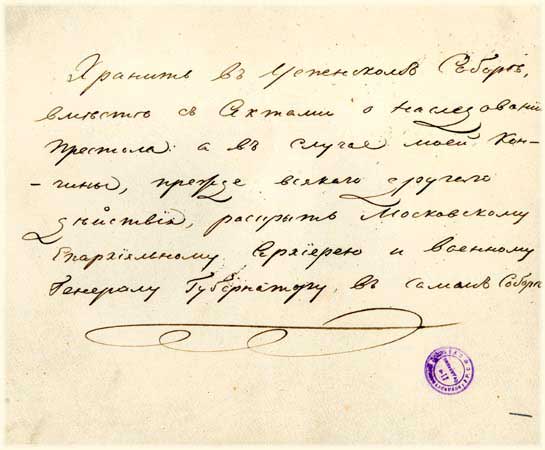 Хранить въ Успенскомъ Соборѣ,
вмѣстѣ съ Актами о наслѣдованіи
престола а въ случае моей кон-
-чины, прежде всякаго другаго
дѣйствія, расскрыть Московскому
Епархіяльному Архіерею и военному
Генералу Губернатору, въ самомъ Соборе